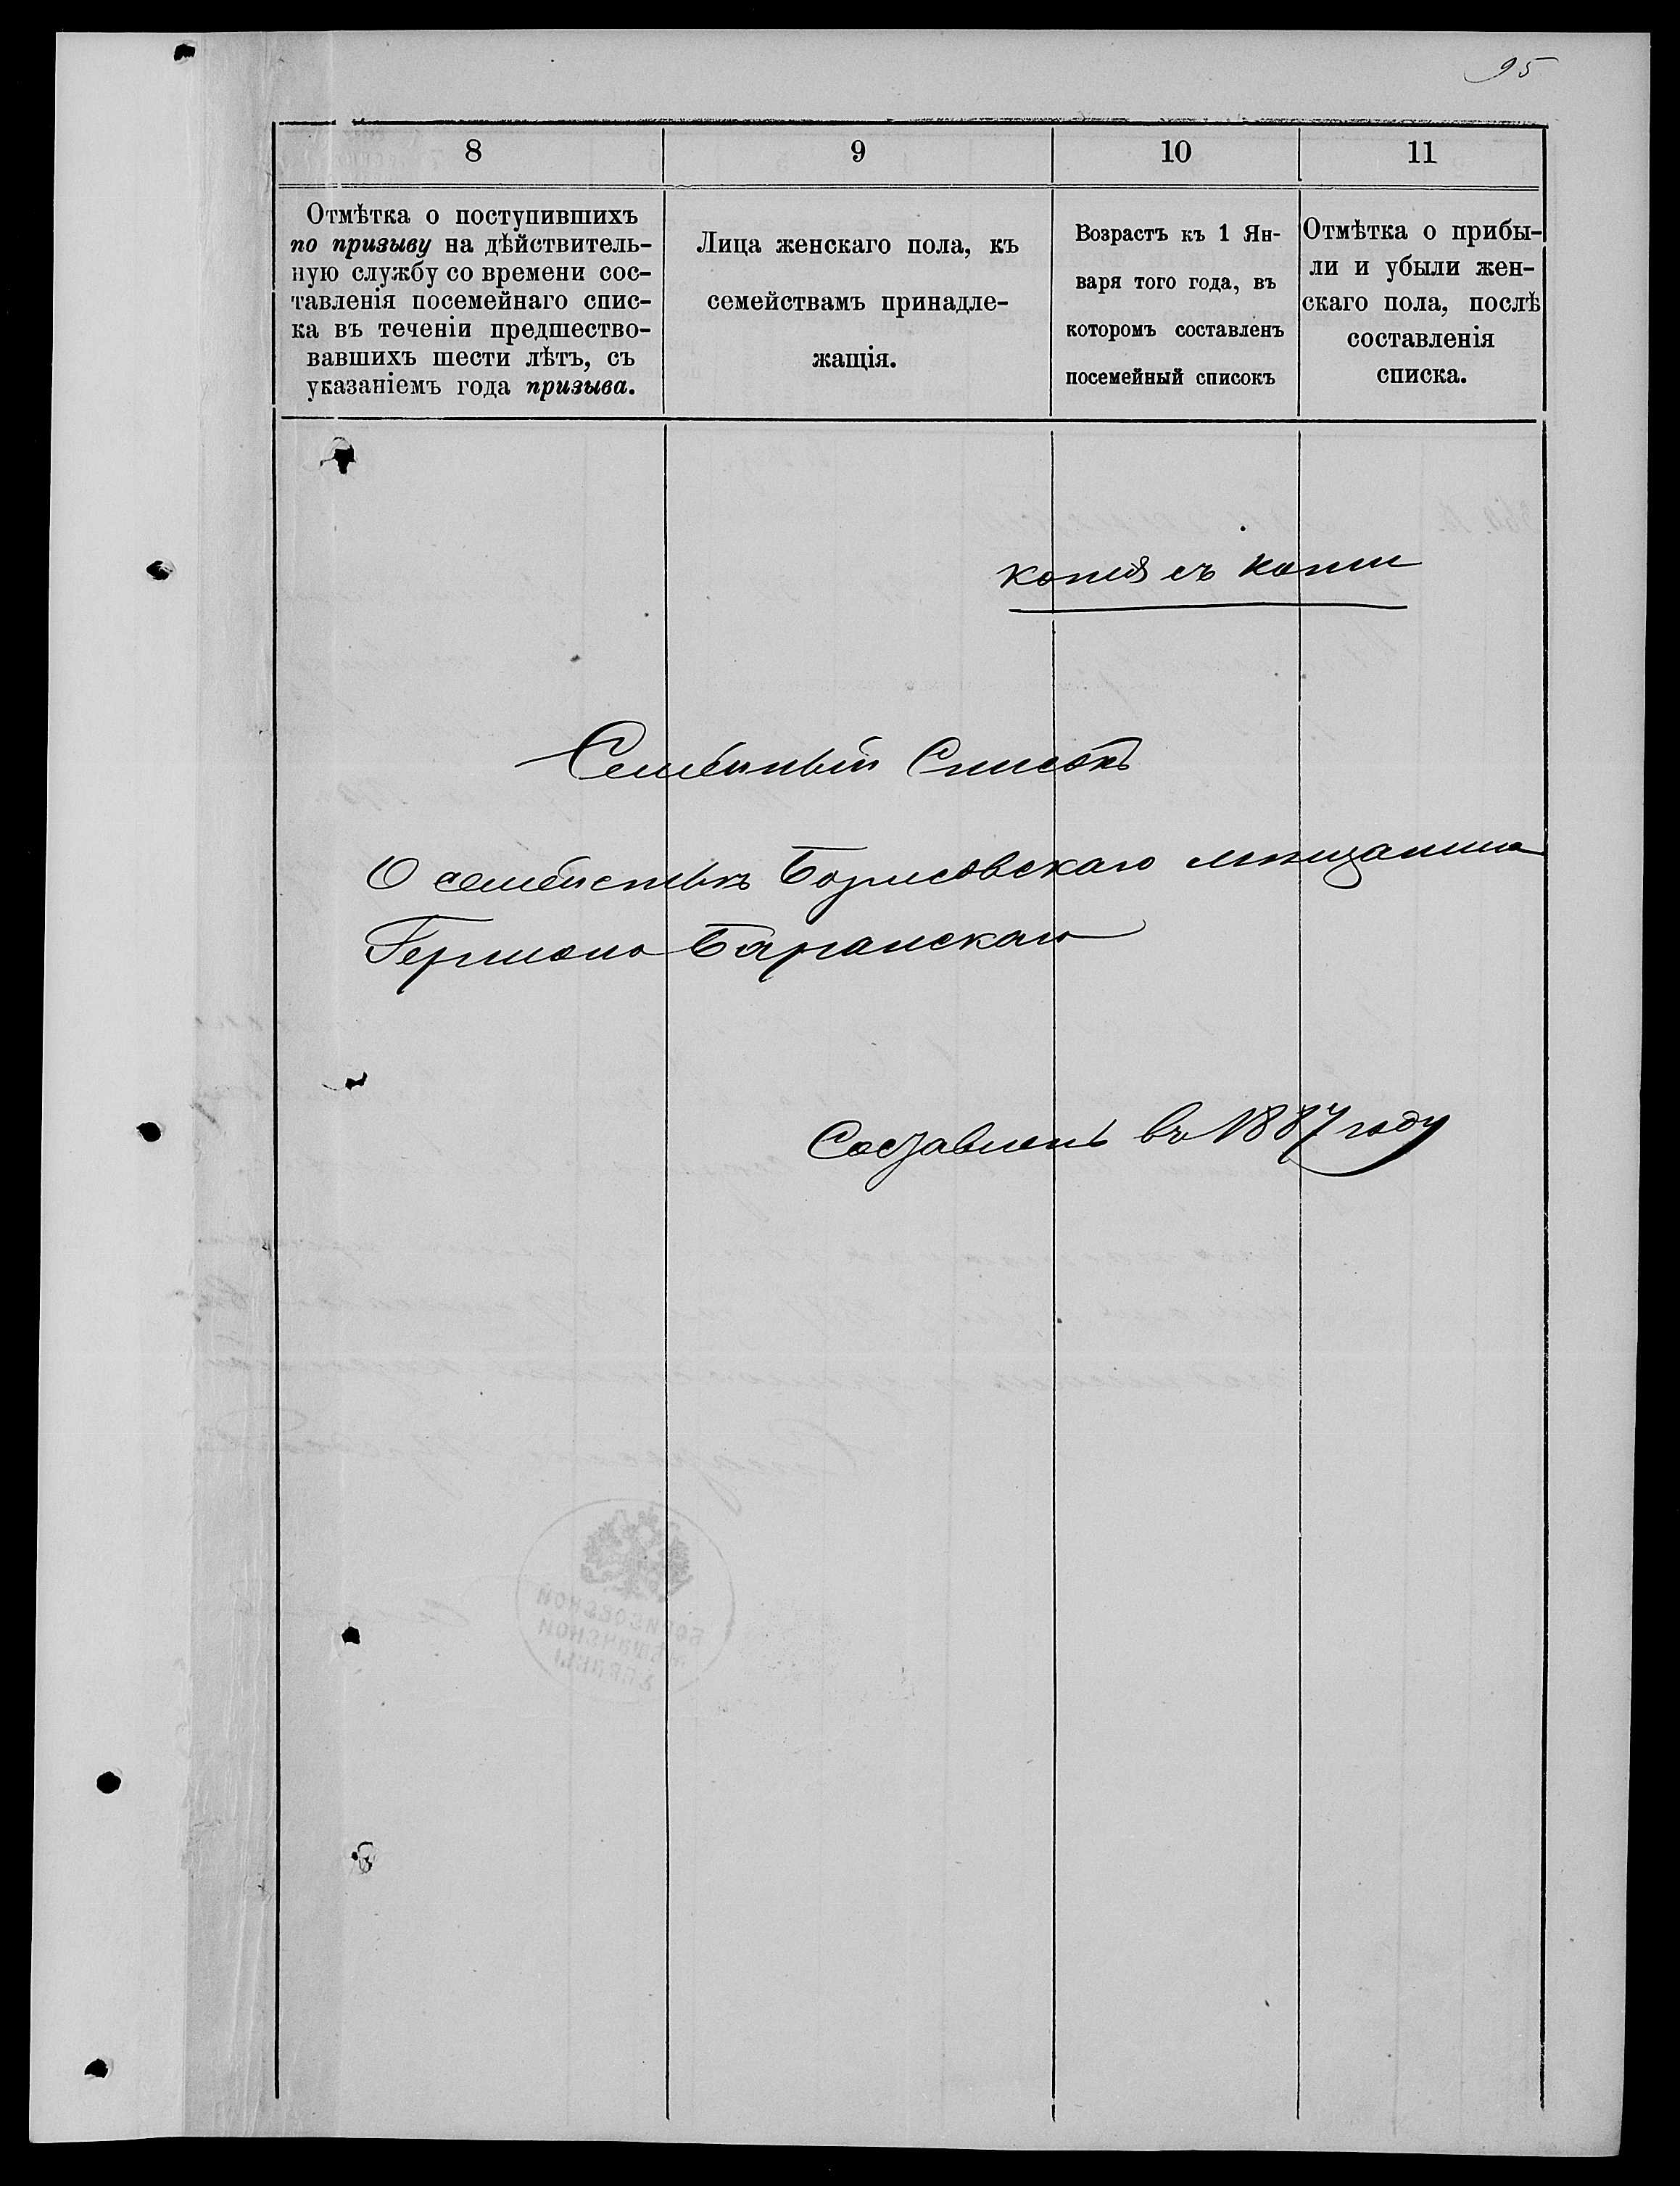 95
8
9
10
11
Отмѣтка о поступившихъ
по призыву на дѣйствитель-
ную службу со времени сос-
тавленія посемейнаго спис-
ка въ теченіи предшество-
вавшихъ шести лѣтъ, съ
указаніемъ года призыва.
Лица женскаго пола, къ
семействамъ принадле-
жащія.
Возрастъ къ 1 Ян-
варя того года, въ
которомъ составленъ
посемейный списокъ
Отмѣтка о прибы-
ли и убыли жен-
скаго пола, послѣ
составленія
списка.
копия съ копии
Семейный Списокъ
О семействѣ Борисовскаго мѣщанина
Германа Баранскаго
Составленъ въ 1887 году